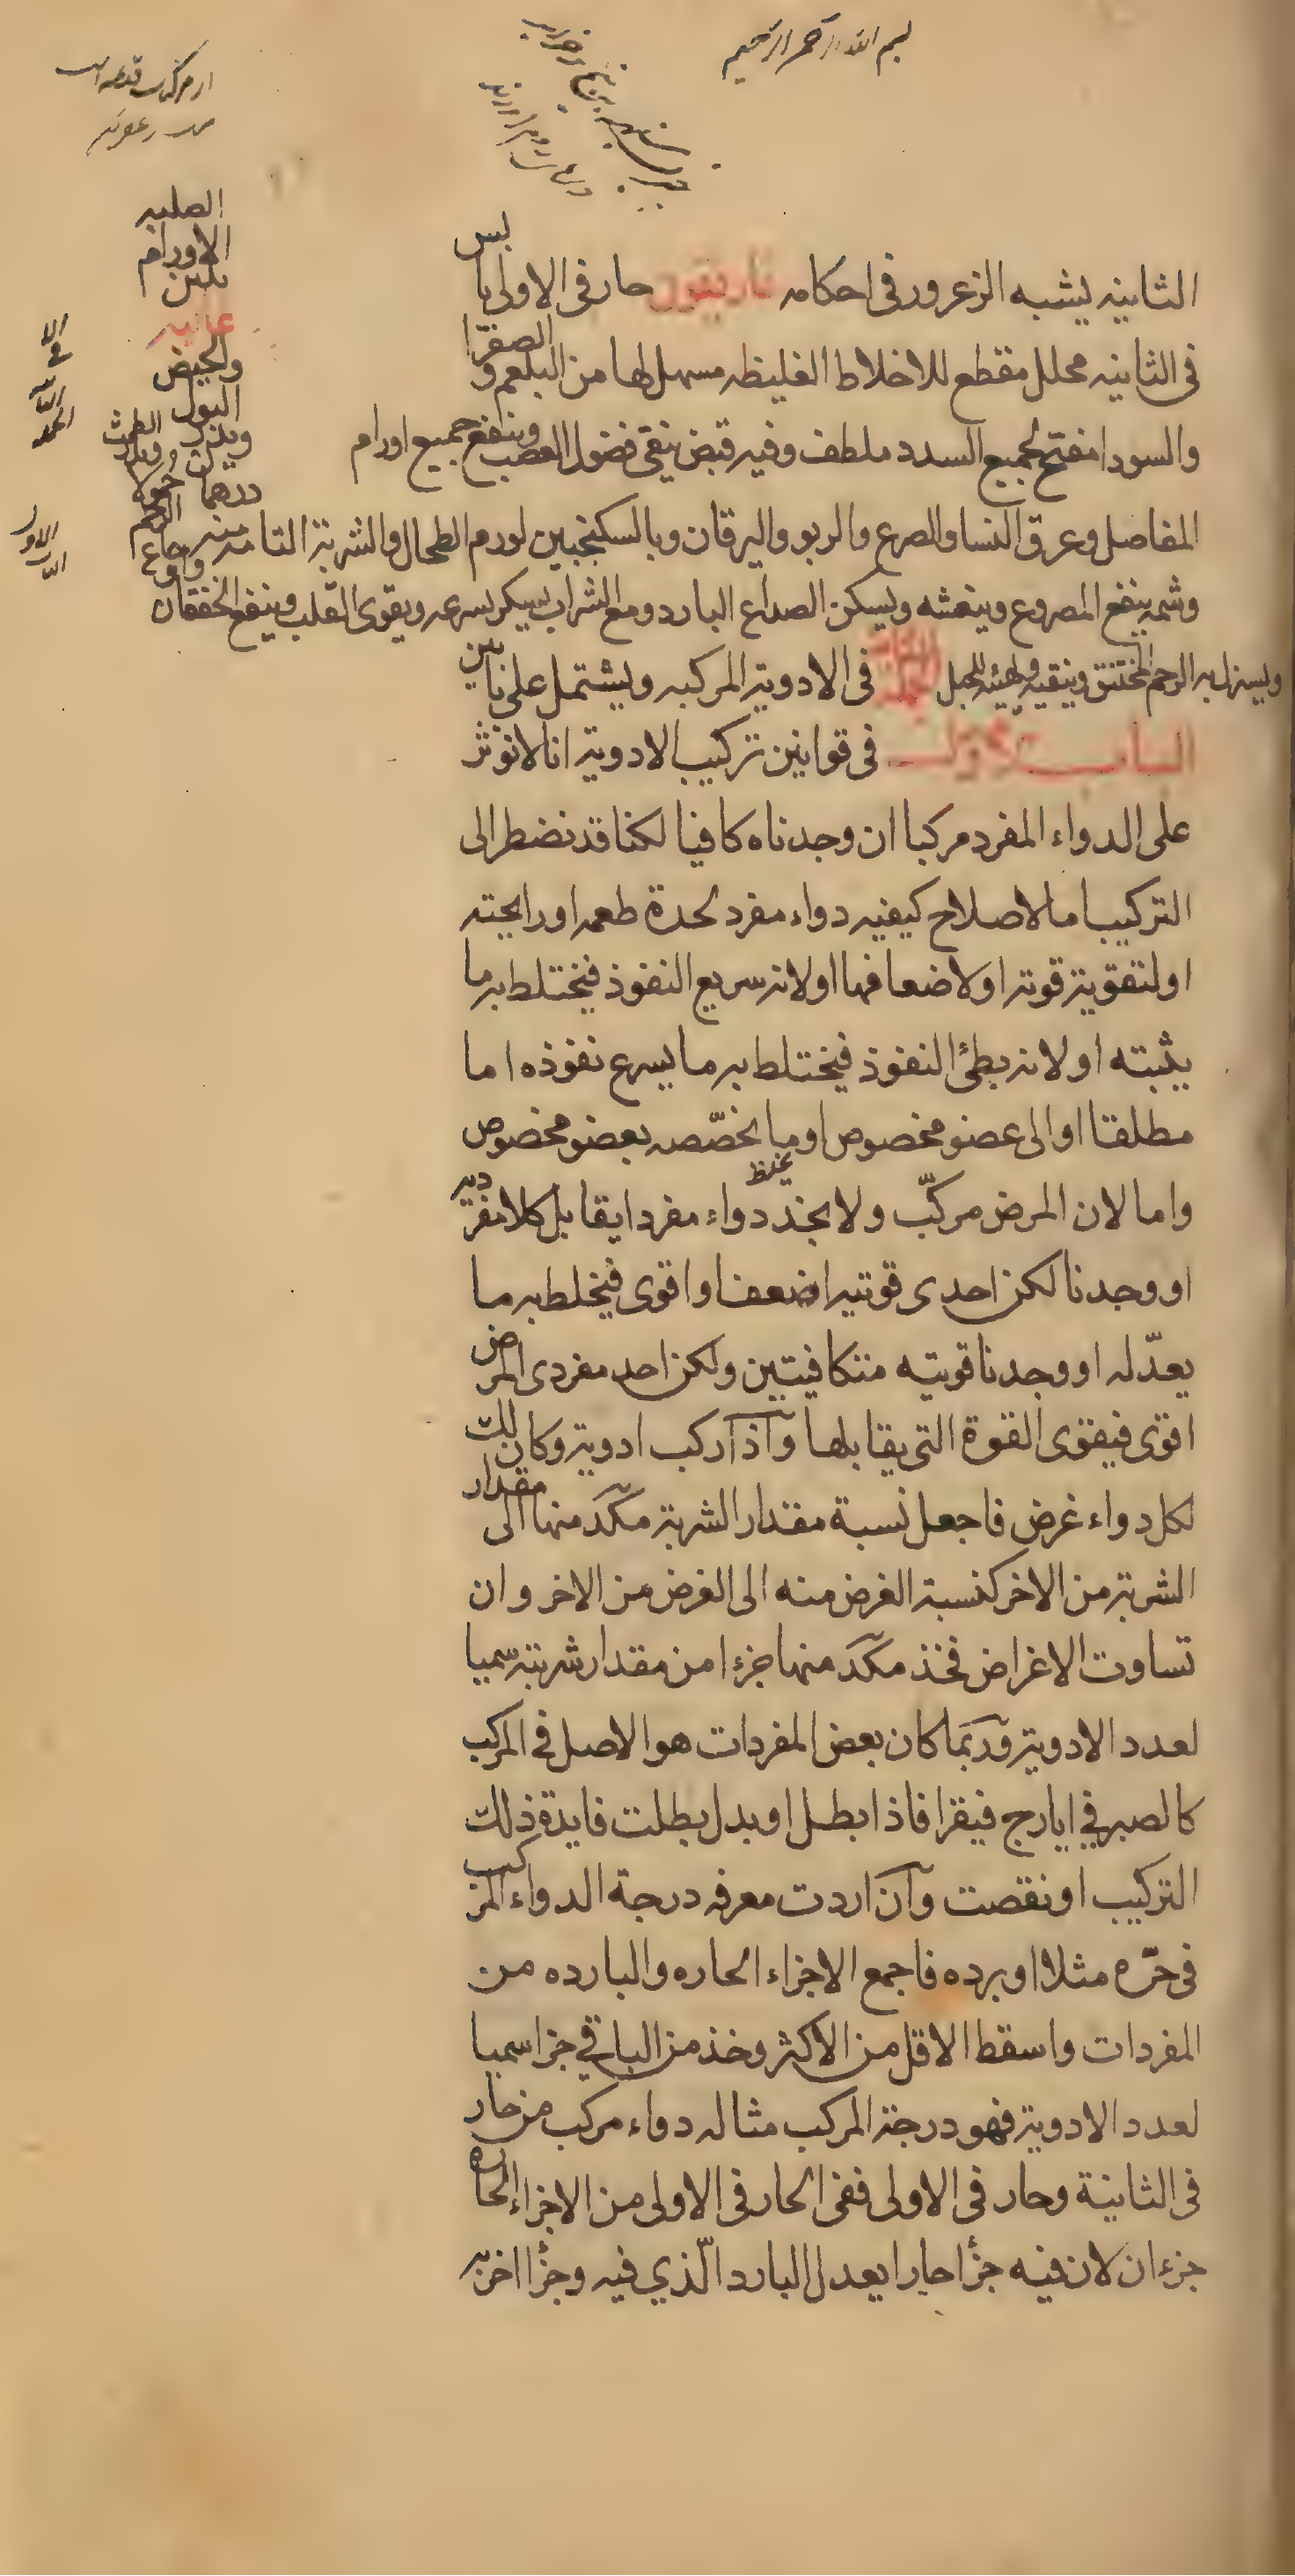 بسم الله الرحمن الرحيم
الثانيه يشبه الزعرور فى احكامه غاريقون حار فى الاولى يابس
فى الثانيه محلل مقطع للاخلاط الغليظه مسهل لها من البلغم والصفرا
والسودا مفتح لجميع السدد ملطف وفيه قبض ينقى فضول العصب وينفع جميع اورام
المفاصل وعرق النسا والصرع والربو واليرقان وبالسكنجبين لورم الطحال والشربة التامه منه درهمان
ويدر البول والحيض
غاليه
تلين الاورام الصلبه
وشمه ينفع المصروع وينعشه ويسكن الصداع البارد ومع الشراب يسكر بسرعه ويقوى القلب وينفع الخفقان
واوجاع الرحم حمولا ويدر الطمث
ويستنزل به الرحم المختنق وينقيه ويهيئه للحبل الجملة الثانية فى الادوية المركبه ويشتمل على بابين
الباب الاول فى قوانين تركيب الادوية انا لا نوثر
على الدواء المفرد مركبا ان وجدناه كافيا لكنا قد نضطر الى
التركيب اما لاصلاح كيفيه دواء مفرد لحدة طعمه او رايحته
او لتقوية قوته او لاضعافها او لانه سريع النفوذ فيختلط به ما
يثبته او لانه بطئ النفوذ فيختلط به ما يسرع نفوذه اما
مطلقا او الى عضو مخصوص او ما يخصّصه بعضو مخصوص
واما لان المرض مركّب ولا نجد دواء مفردا يقابل كلا مفرديه
او وجدنا لكن احدى قوتيه اضعف او اقوى فيخلط به ما
يعدّله او وجدنا قوتيه متكافيتين ولكن احد مفردى المرض
اقوى فيقوى القوة التى يقابلها وآذا ركب ادوية وكان لك
لكل دواء غرض فاجعل نسبة مقدار الشربة من كل منها الى مقدار
الشربة من الاخر كنسبة الغرض منه الى الغرض من الاخر وان
تساوت الاغراض فخذ من كل منها جزءا من مقدار شربته سميا
لعدد الادوية وربّما كان بعض المفردات هو الاصل فى المركب
كالصبر في ايارج فيقرا فاذا بطل او بدل بطلت فايدة ذلك
التركيب او نقصت وآن اردت معرفه درجة الدواء المركب
فى حرّه مثلا او برده فاجمع الاجزاء الحاره والبارده من
المفردات واسقط الاقل من الاكثر وخذ من الباقي جزا سميا
لعدد الادوية فهو درجة المركب مثاله دواء مركب من حار
فى الثانية وحار فى الاولى ففى الحار فى الاولى من الاجزاء الحاره
جزءان لان فيه جزأ حارا يعدل البارد الّذي فيه وجزأ اخر به